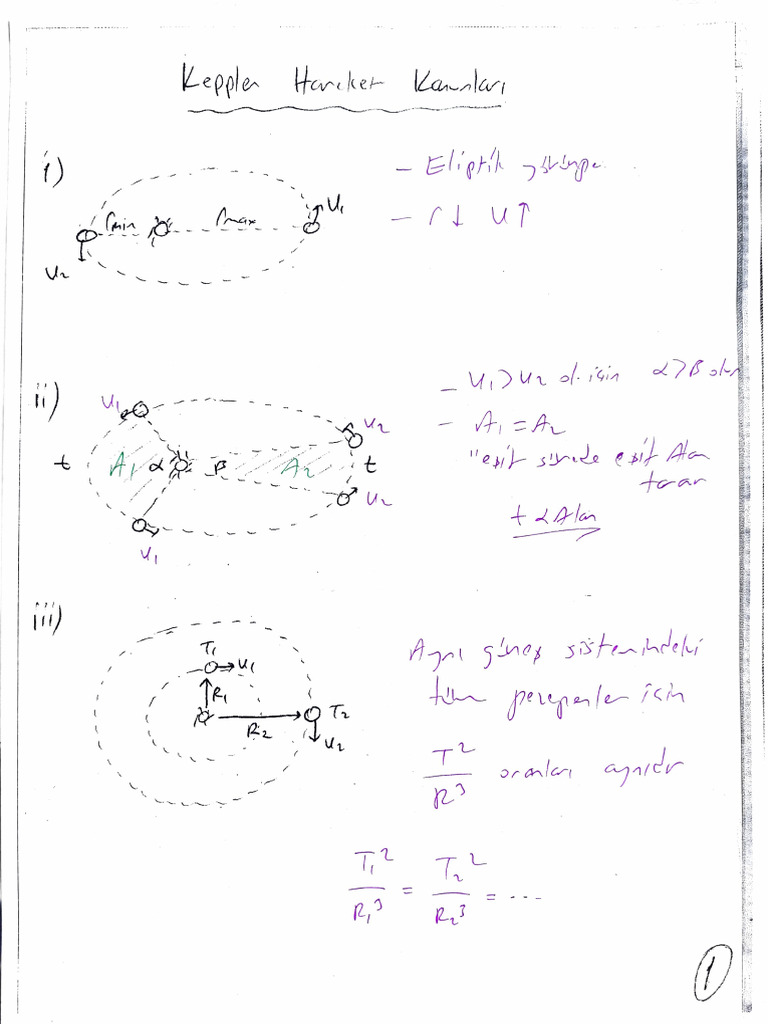 Keppler Hareket Kanunları
i)
rmin
rmax
υ1
υ2
- Eliptik yörünge
- r↓ υ↑
ii)
υ1
υ2
t
A1
α
β
A2
t
υ2
υ1
- υ1 > υ2 ol. için α > β olur
- A1 = A2
"eşit sürede eşit Alan
tarar
t α Alan
iii)
T1
υ1
R1
T2
R2
υ2
Aynı güneş sistemindeki
tüm gezegenler için
T²/R³ oranları aynıdır
T1²/R1³ = T2²/R2³ = ...
1